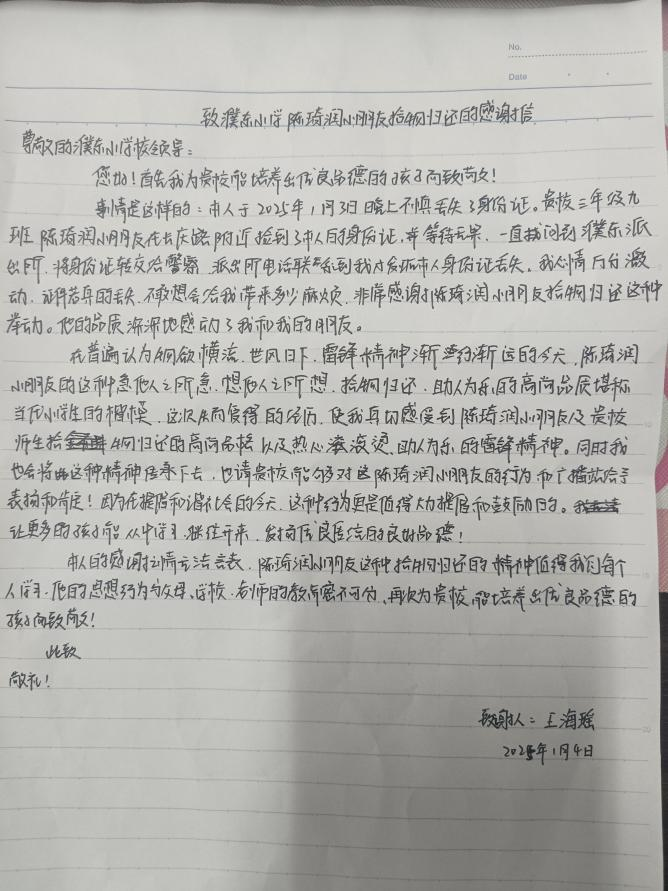 No.
Date
致濮东小学陈琦润小朋友拾物归还的感谢信
尊敬的濮东小学校领导：
您好！首先我为贵校能培养出优良品德的孩子而致敬！
事情是这样的：本人于2025年1月3日晚上不慎丢失了身份证。贵校三年级九
班陈琦润小朋友在长庆路附近捡到了本人的身份证，并等待无果，一直找问到濮东派
出所，将身份证转交给警察，派出所电话联系到我才发现本人身份证丢失。我心情万分激
动，证件若真的丢失，不敢想会给我带来多少麻烦，非常感谢陈琦润小朋友拾物归还这种
举动。他的品质深深地感动了我和我的朋友。
在普遍认为物欲横流、世风日下、雷锋精神渐行渐远的今天，陈琦润
小朋友的这种急他人之所急，想他人之所想，拾物归还，助人为乐的高尚品质堪称
当代小学生的楷模。这次失而复得的经历，使我真切感受到陈琦润小朋友及贵校
师生拾物归还的高尚品格以及热心滚烫、助人为乐的雷锋精神。同时我
也会将这种精神传承下去，也请贵校能够对这陈琦润小朋友的行为和广播站给予
表扬和肯定！因为在提倡和谐社会的今天，这种行为更是值得大力提倡和鼓励的。
让更多的孩子能从中学习、继往开来、发扬优良传统的良好品德！
本人的感谢之情无法言表，陈琦润小朋友这种拾物归还的精神值得我们每个
人学习，他的思想行为与父母、学校、老师的教育密不可分，再次为贵校能培养出优良品德的
孩子而致敬！
此致
敬礼！
致谢人：王海瑶
2025年1月4日